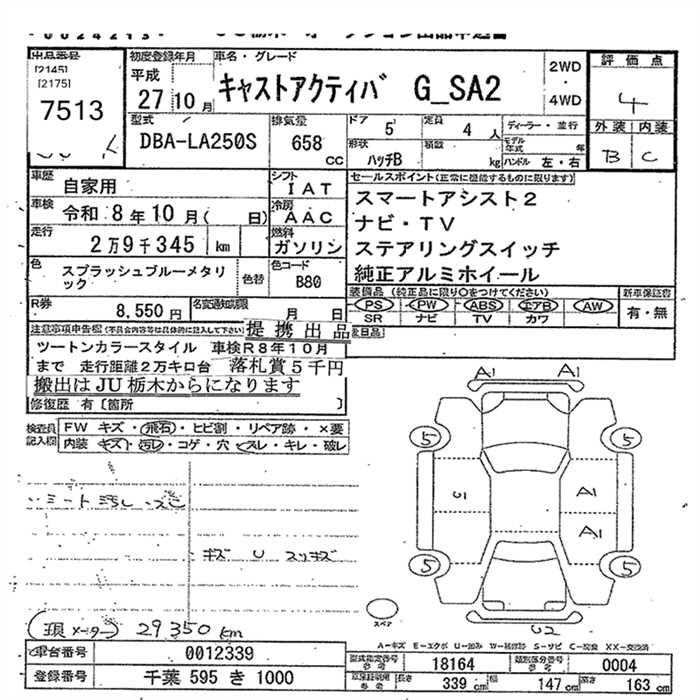 00024213
出品番号
[2145]
[2175]
7513
初度登録年月
平成
27年10月
車名・グレード
キャストアクティバ G_SA2
2WD
・
4WD
評価点
4
外装 内装
B C
型式
DBA-LA250S
排気量
658
CC
ドア
5
定員
4人
ディーラー・並行
形状
ハッチB
積数
kg
モデル年式 年
ハンドル 左・右
車歴
自家用
シフト
IAT
車検
令和 8年10月( 日)
冷房
AAC
走行
2万9千345 km
燃料
ガソリン
色
スプラッシュブルーメタリック
色替
色コード
B80
セールスポイント(正常に機能するものに限ります)
スマートアシスト2
ナビ・TV
ステアリングスイッチ
純正アルミホイール
装備品 (純正品に限り○をつけてください)
PS PW ABS エアB AW
SR ナビ TV カワ
新車保証書
有・無
R券
8,550円
名変通知期限
月 日
注意事項申告欄
提携出品
ツートンカラースタイル 車検R8年10月
まで 走行距離2万キロ台 落札賞5千円
搬出はJU栃木からになります
修復歴 有〔箇所 〕
検査員
記入欄
FW キズ・飛石・ヒビ割・リペア跡・×要
内装 キズ・汚レ・コゲ・穴・スレ・キレ・破レ
シート汚レ
キズ U スリキズ
現メーター 29350km
A1
A1
5
5
A1
A1
5
5
U2
スペア
A-キズ E-エクボ U-凹み W-補修跡 S-サビ C-腐食 XX-交換済
車台番号
0012339
登録番号
千葉 595 き 1000
型式指定番号
参考
18164
類別区分番号
参考
0004
長さ
339cm
幅
147cm
高さ
163cm